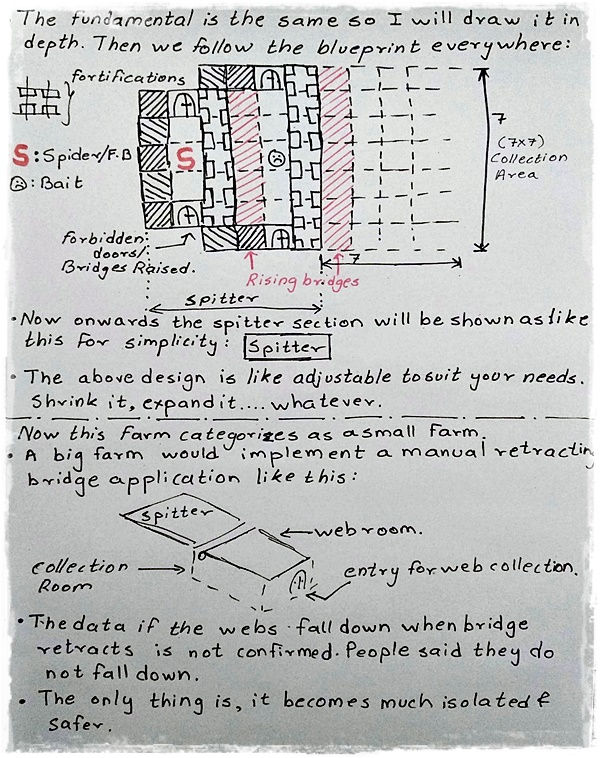 The fundamental is the same so I will draw it in
depth. Then we follow the blueprint everywhere:
fortifications
S: Spider/F.B
☹: Bait
S
7
(7x7)
Collection
Area
Forbidden
doors/
Bridges Raised.
7
Rising bridges
spitter
• Now onwards the spitter section will be shown as like
this for simplicity: Spitter
• The above design is like adjustable to suit your needs.
Shrink it, expand it.... whatever.
Now this Farm categorizes as a small farm.
• A big farm would implement a manual retracting
bridge application like this:
Spitter
web room.
collection
Room
entry for web collection.
• The data if the webs fall down when bridge
retracts is not confirmed. People said they do
not fall down.
• The only thing is, it becomes much isolated &
safer.